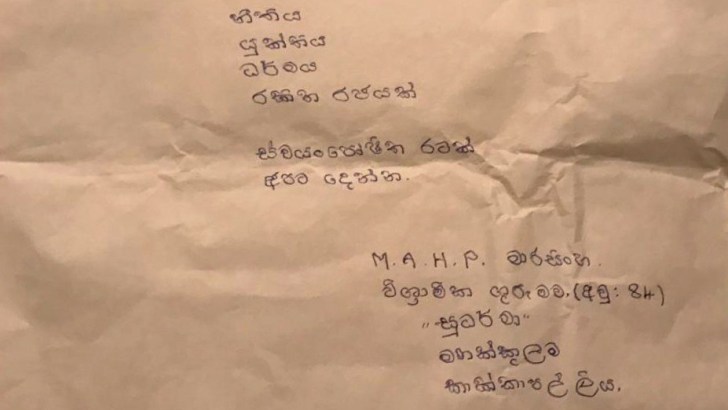 නීතිය
යුක්තිය
ධර්මය
රකින රජයක්
ස්වයංපෝෂිත රටක්
අපට දෙන්න.
M.A.H.P. මාරසිංහ.
විශ්‍රාමික ගුරුමව.(අවු: 84)
"සුධර්මා"
මහක්කුලම
කාක්කාපල්ලිය.